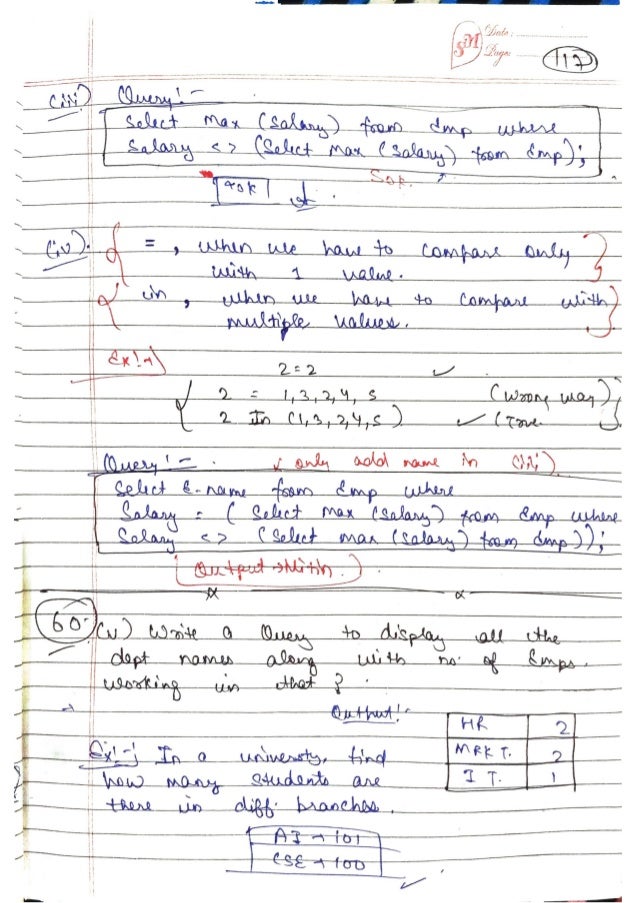 SM Date:
Page: 117
(iii) Query:-
Select max (salary) from Emp where
Salary <> (Select max (salary) from Emp);
50k.
40k
(iv). =, when we have to compare only
with 1 value.
in, when we have to compare with
multiple values.
Ex:→
2=2 ✓
2 = 1,3,2,4,5 (Wrong way)
2 In (1,3,2,4,5) ✓ (True
Query:- ↙ only add name in (iii)
Select E-name from Emp where
Salary = ( Select max (salary) from Emp where
Salary <> (Select max (salary) from Emp));
(Output → Nitin.)
x x
60. (v) Write a Query to display all the
dept names along with no. of Emps.
working in that ?
→ Output:-
HR 2
MRKT. 2
IT. 1
Ex:-) In a university, find
how many students are
there in diff. branches.
AI → 101
CSE → 100